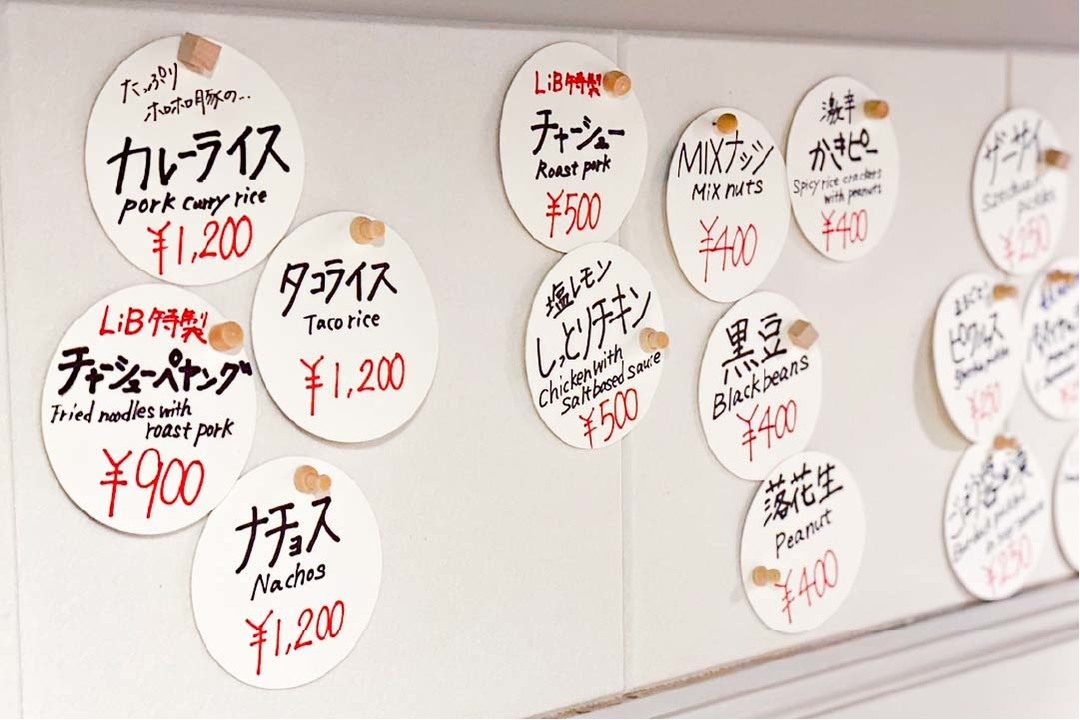 たっぷり
ホロホロ豚の...
カレーライス
pork curry rice
¥1,200
タコライス
Taco rice
¥1,200
LiB特製
チャーシューペヤング
Fried noodles with
roast pork
¥900
ナチョス
Nachos
¥1,200
LiB特製
チャーシュー
Roast pork
¥500
塩レモン
しっとりチキン
Chicken with
Salt based sauce
¥500
MIXナッツ
Mix nuts
¥400
激辛
かきピー
Spicy rice crackers
with peanuts
¥400
黒豆
Black beans
¥400
落花生
Peanut
¥400
ザーサイ
Szechuan
pickles
¥250
ピクルス
¥250
¥250